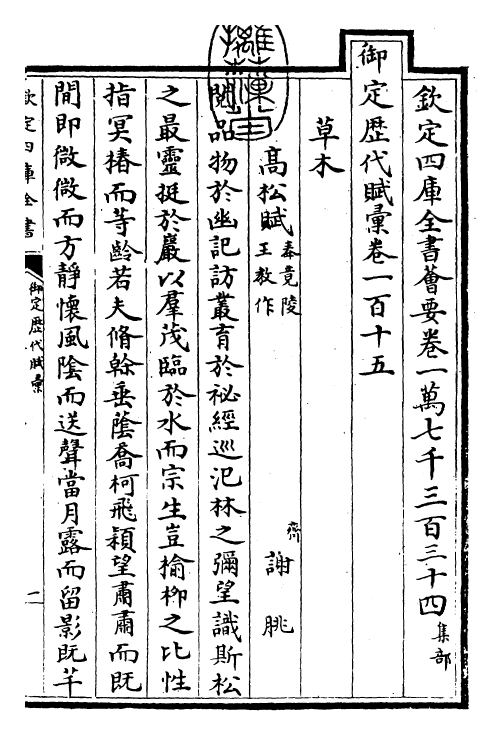 欽定四庫全書薈要卷一萬七千三百三十四集部
御定歴代賦彙卷一百十五
草木
高松賦奉竟陵王教作 齊謝朓
閱品物於幽記訪叢育於祕經巡汜林之彌望識斯松
之最靈挺於巖以羣茂臨於水而宗生豈榆柳之比性
指冥椿而等齡若夫脩幹垂蔭喬柯飛穎望肅肅而既
閒即微微而方靜懷風陰而送聲當月露而留影既芊
欽定四庫全書
御定歴代賦彙